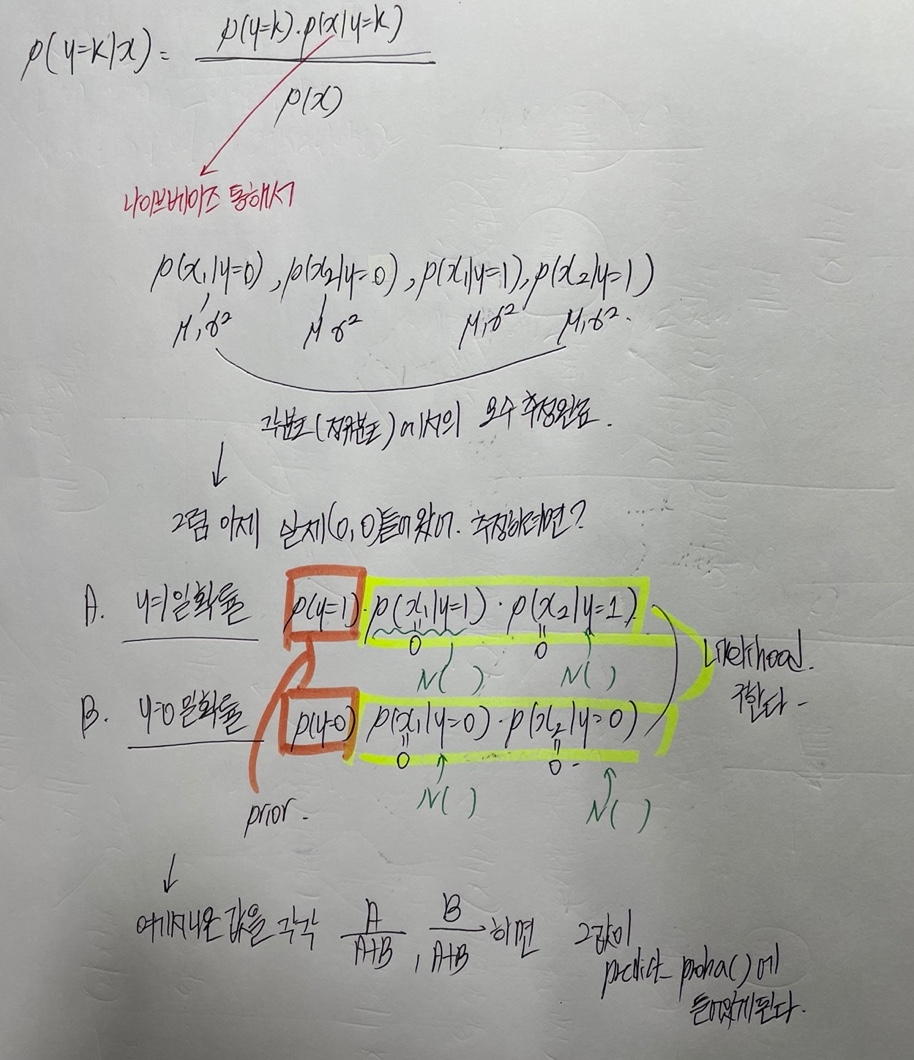 p(y=k|x) = p(y=k)·p(x|y=k)
p(x)
나이브베이즈 통해서
p(x₁|y=0), p(x₂|y=0), p(x₁|y=1), p(x₂|y=1)
μ,σ² μ σ² μ,σ² μ,σ².
각분포(정규분포)에서의 모수 추정완료.
↓
그럼 이제 실제(0,0)들어왔어. 추정하려면?
A. y=1일확률 p(y=1)·p(x₁|y=1)·p(x₂|y=1)
0 0
N( ) N( )
Likelihood.
구한다-
B. y=0일확률 p(y=0) p(x₁|y=0)·p(x₂|y=0)
0 0-
N( ) N( )
prior-
↓
여기서나온 값을 각각 A/A+B, B/A+B 하면 그값이
predict_proba()에
들어있게된다.